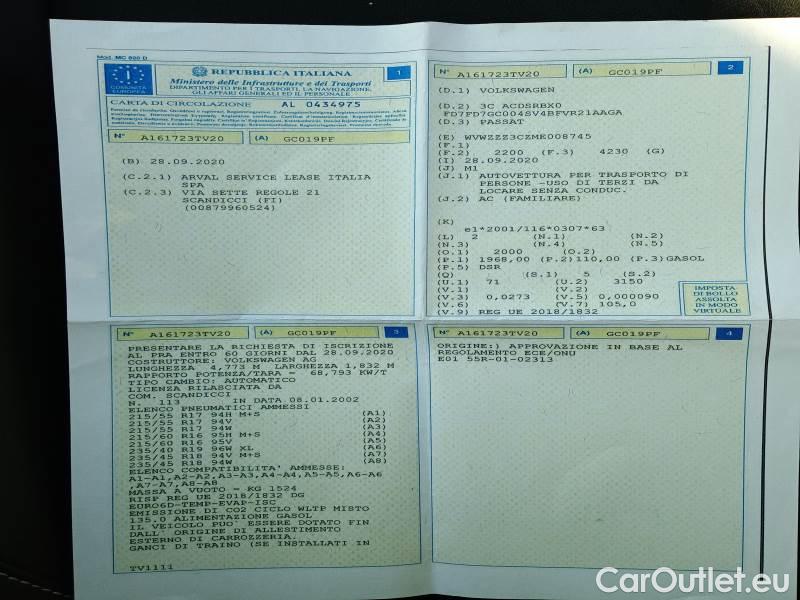 Mod. MC 820 D
REPUBBLICA ITALIANA
1
Ministero delle Infrastrutture e dei Trasporti
DIPARTIMENTO PER I TRASPORTI, LA NAVIGAZIONE,
GLI AFFARI GENERALI ED IL PERSONALE
I
COMUNITÀ
EUROPEA
CARTA DI CIRCOLAZIONE AL 0434975
N° A161723TV20 (A) GC019PF
(B) 28.09.2020
(C.2.1) ARVAL SERVICE LEASE ITALIA
SPA
(C.2.3) VIA SETTE REGOLE 21
SCANDICCI (FI)
(00879960524)
N° A161723TV20 (A) GC019PF 2
(D.1) VOLKSWAGEN
(D.2) 3C ACDSRBX0
FD7FD7GC004SV4BFVR21AAGA
(D.3) PASSAT
(E) WVWZZZ3CZME008745
(F.1)
(F.2) 2200 (F.3) 4230 (G)
(I) 28.09.2020
(J) M1
(J.1) AUTOVETTURA PER TRASPORTO DI
PERSONE -USO DI TERZI DA
LOCARE SENZA CONDUC.
(J.2) AC (FAMILIARE)
(K)
e1*2001/116*0307*63
(L) 2 (N.1) (N.2)
(N.3) (N.4) (N.5)
(O.1) 2000 (O.2)
(P.1) 1968,00 (P.2)110,00 (P.3)GASOL
(P.5) DSR
(Q) (S.1) 5 (S.2)
(U.1) 71 (U.2) 3150
(V.1) (V.2)
(V.3) 0,0273 (V.5) 0,000090
(V.6) (V.7) 105,0
(V.9) REG UE 2018/1832
IMPOSTA
DI BOLLO
ASSOLTA
IN MODO
VIRTUALE
N° A161723TV20 (A) GC019PF 3
PRESENTARE LA RICHIESTA DI ISCRIZIONE
AL PRA ENTRO 60 GIORNI DAL 28.09.2020
COSTRUTTORE: VOLKSWAGEN AG
LUNGHEZZA 4,773 M LARGHEZZA 1,832 M
RAPPORTO POTENZA/TARA = 68,793 KW/T
TIPO CAMBIO: AUTOMATICO
LICENZA RILASCIATA DA
COM. SCANDICCI
N. 113 IN DATA 08.01.2002
ELENCO PNEUMATICI AMMESSI
215/55 R17 94H M+S (A1)
215/55 R17 94V (A2)
215/55 R17 94W (A3)
215/60 R16 95H M+S (A4)
215/60 R16 95V (A5)
235/40 R19 96W XL (A6)
235/45 R18 94V M+S (A7)
235/45 R18 94W (A8)
ELENCO COMPATIBILITA' AMMESSE:
A1-A1,A2-A2,A3-A3,A4-A4,A5-A5,A6-A6
,A7-A7,A8-A8
MASSA A VUOTO = KG 1524
RISP REG UE 2018/1832 DG
EURO6D-TEMP-EVAP-ISC
EMISSIONE DI CO2 CICLO WLTP MISTO
135,0 ALIMENTAZIONE GASOL
IL VEICOLO PUO' ESSERE DOTATO FIN
DALL' ORIGINE DI ALLESTIMENTO
ESTERNO DI CARROZZERIA.
GANCI DI TRAINO (SE INSTALLATI IN
TV1111
N° A161723TV20 (A) GC019PF 4
ORIGINE:) APPROVAZIONE IN BASE AL
REGOLAMENTO ECE/ONU
E01 55R-01-02313
CarOutlet.eu